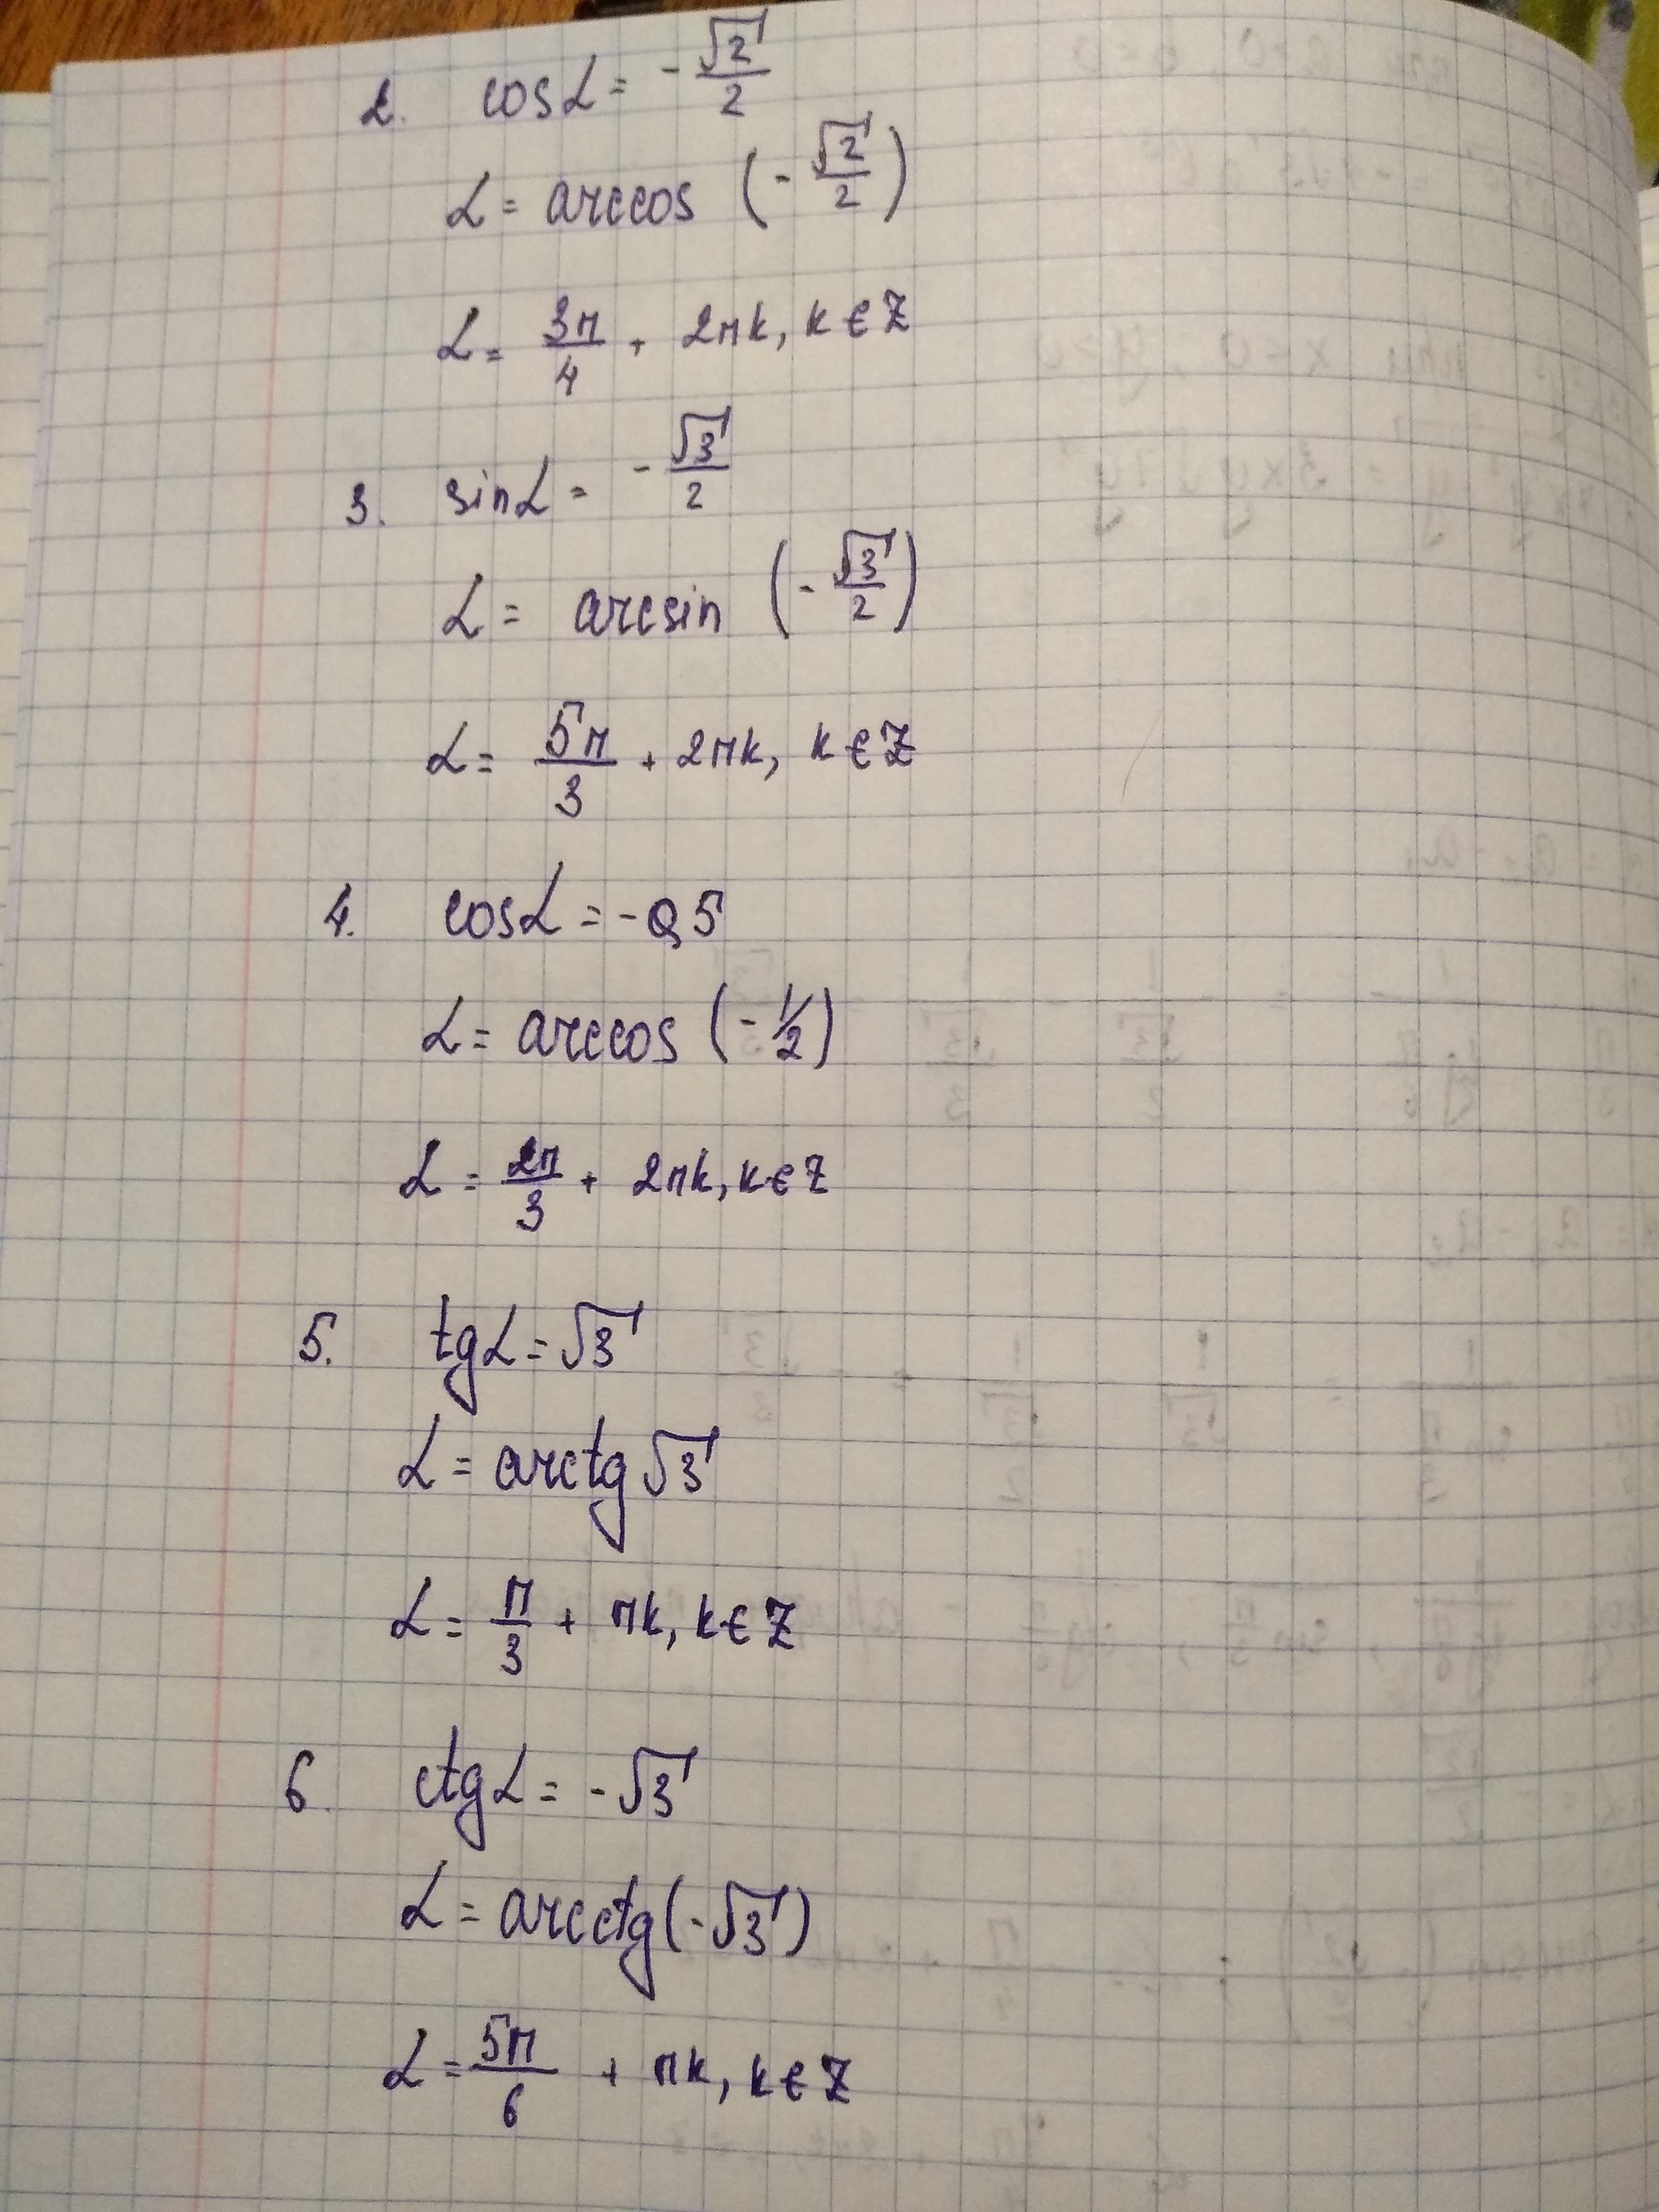 2. cos α = -√2/2
α = arccos (-√2/2)
α = 3π/4 + 2πk, k ∈ Z
3. sin α = -√3/2
α = arcsin (-√3/2)
α = 5π/3 + 2πk, k ∈ Z
4. cos α = -0,5
α = arccos (-1/2)
α = 2π/3 + 2πk, k ∈ Z
5. tg α = √3
α = arctg √3
α = π/3 + πk, k ∈ Z
6. ctg α = -√3
α = arcctg (-√3)
α = 5π/6 + πk, k ∈ Z